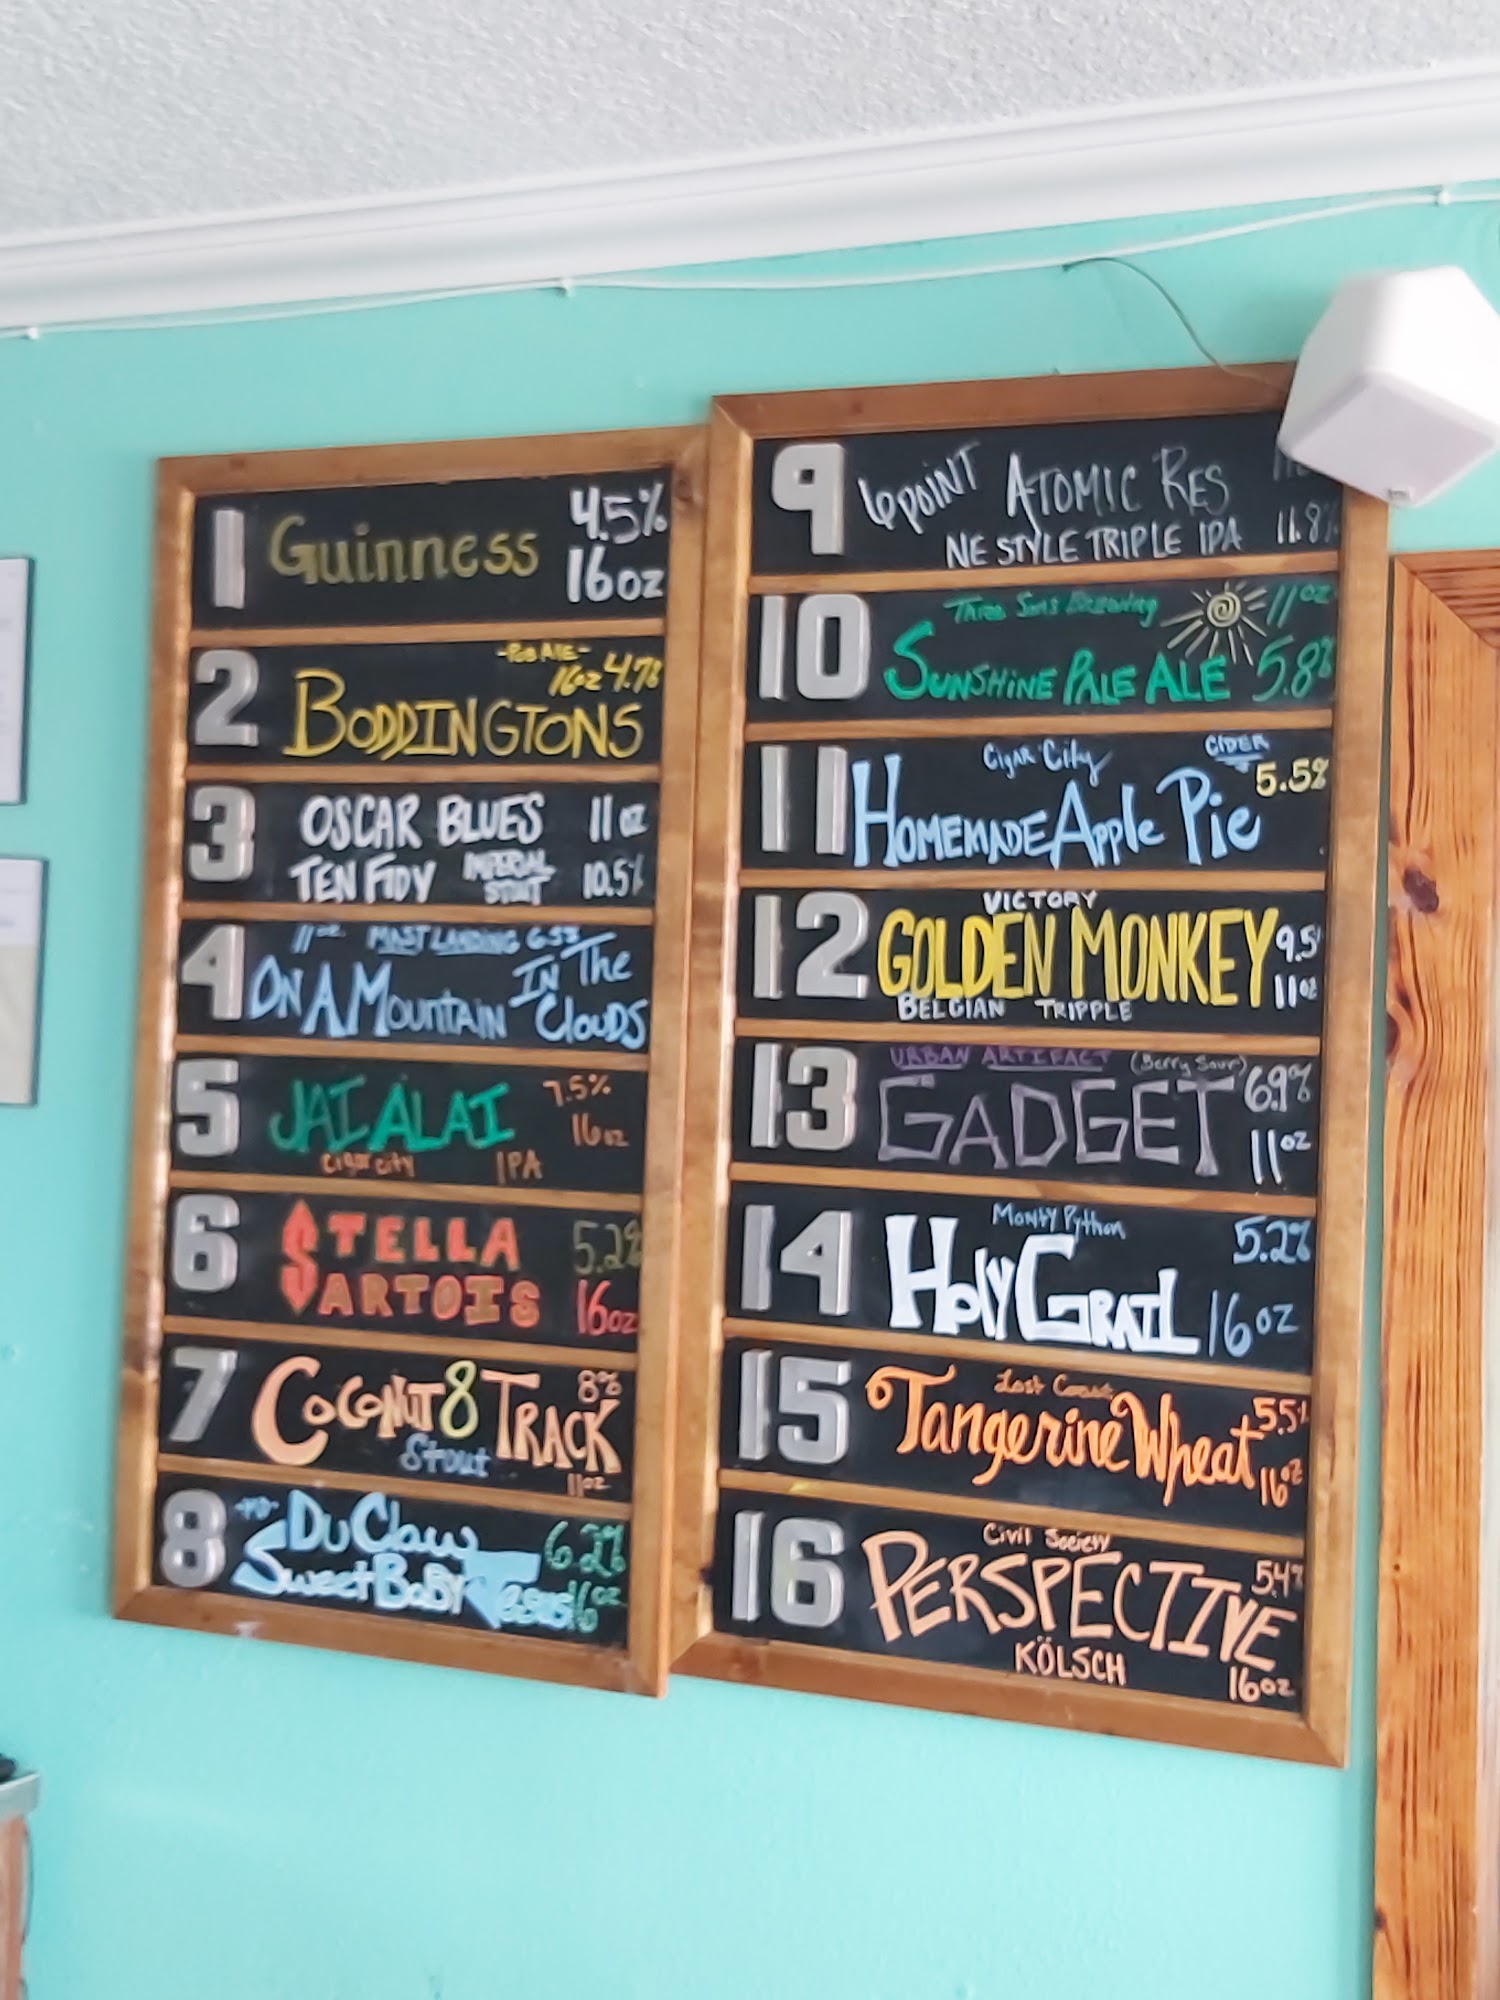 1 Guinness 4.5%
16oz
2 -Pub Ale-
16oz 4.7%
BODDINGTONS
3 OSCAR BLUES 11oz
TEN FIDY IMPERIAL STOUT 10.5%
4 11oz MAST LANDING
ON A MOUNTAIN IN THE CLOUDS
5 JAI ALAI 7.5%
16oz
Cigar City IPA
6 STELLA 5.2%
ARTOIS 16oz
7 COCONUT 8 TRACK 8%
Stout 11oz
8 DuClaw 6.2%
SWEET BABY Jesus 16oz
9 6POINT ATOMIC RES
NE STYLE TRIPLE IPA 11.8%
10 Three Suns Brewing 11oz
SUNSHINE PALE ALE 5.8%
11 Cigar City CIDER
HOMEMADE Apple Pie 5.5%
12 VICTORY
GOLDEN MONKEY 9.5
BELGIAN TRIPPLE 11oz
13 URBAN ARTIFACT (Berry Sour)
GADGET 6.9%
11oz
14 Monty Python 5.2%
HOLY GRAIL 16oz
15 Lost Coast
Tangerine Wheat 5.5%
16oz
16 Civil Society
PERSPECTIVE 5.4%
KÖLSCH 16oz